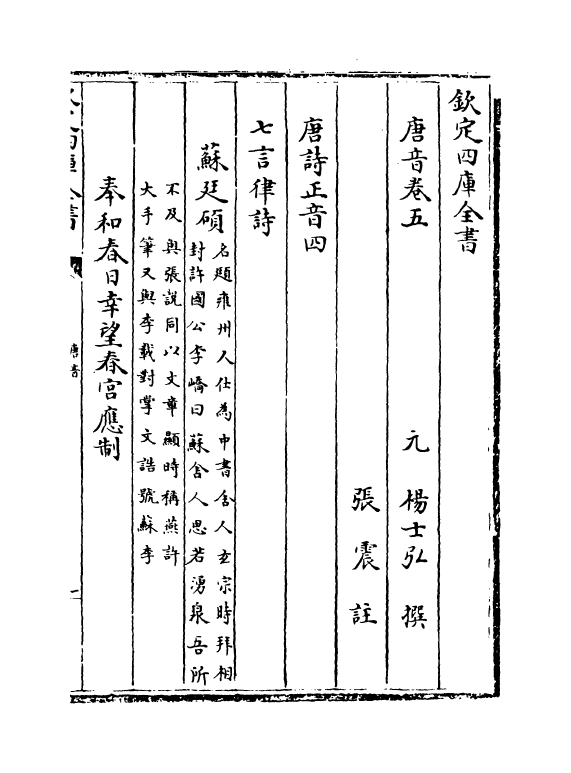 欽定四庫全書
唐音卷五
元 楊士弘 撰
張震 註
唐詩正音四
七言律詩
蘇廷碩
名題雍州人仕為中書舍人玄宗時拜相
封許國公李嶠曰蘇舍人思若湧泉吾所
不及與張說同以文章顯時稱燕許
大手筆又與李載對掌文誥號蘇李
奉和春日幸望春宮應制
唐音
一